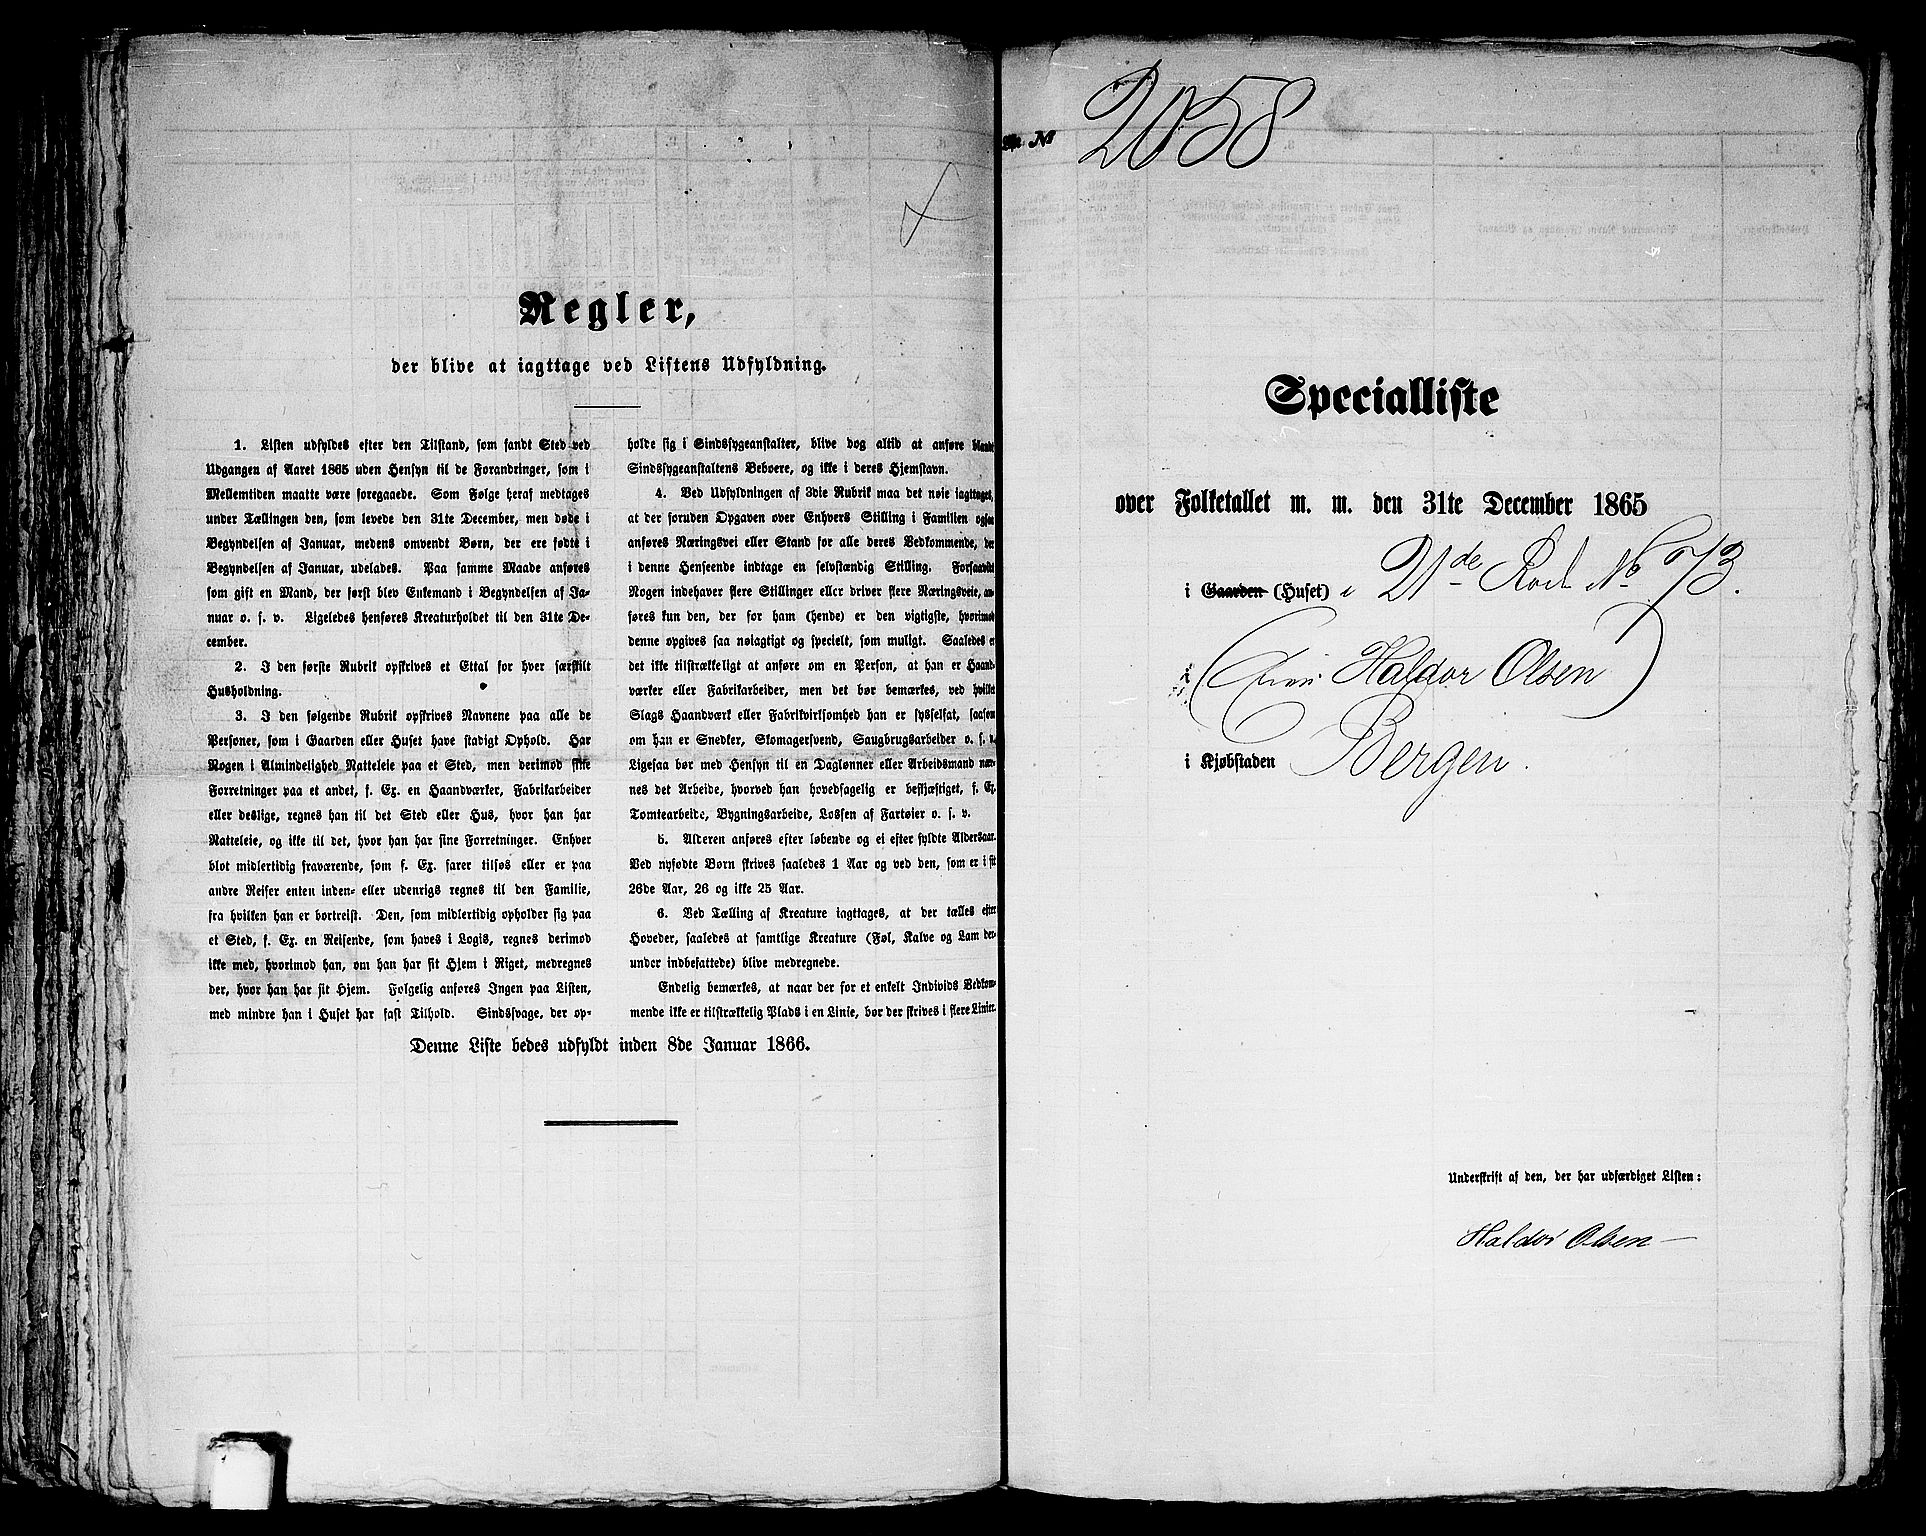 Regler,
der blive at iagttage ved Listens Udfyldning.
1. Listen udfyldes efter den Tilstand, som fandt Sted ved
Udgangen af Aaret 1865 uden Hensyn til de Forandringer, som i
Mellemtiden maatte være foregaaede. Som Følge heraf medtages
under Tællingen den, som levede den 31te December, men døde i
Begyndelsen af Januar, medens omvendt Børn, der ere fødte i
Begyndelsen af Januar, udelades. Paa samme Maade anføres
som gift en Mand, der først blev Enkemand i Begyndelsen af Ja-
nuar o. s. v. Ligeledes henføres Kreaturholdet til den 31te De-
cember.
2. I den første Rubrik opskrives et Ettal for hver særskilt
Husholdning.
3. I den følgende Rubrik opskrives Navnene paa alle de
Personer, som i Gaarden eller Huset have stadigt Ophold. Har
Nogen i Almindelighed Natteleie paa et Sted, men derimod sine
Forretninger paa et andet, f. Ex. en Haandværker, Fabrikarbeider
eller deslige, regnes han til det Sted eller Hus, hvor han har
Natteleie, og ikke til det, hvor han har sine Forretninger. Enhver
blot midlertidig fraværende, som f. Ex. farer tilsøs eller er paa
andre Reiser enten inden- eller udenrigs regnes til den Familie,
fra hvilken han er bortreist. Den, som midlertidig opholder sig paa
et Sted, f. Ex. en Reisende, som haves i Logis, regnes derimod
ikke med, hvorimod han, om han har sit Hjem i Riget, medregnes
der, hvor han har sit Hjem. Følgelig anføres Ingen paa Listen,
med mindre han i Huset har fast Tilhold. Sindssvage, der op-
holde sig i Sindssygeanstalter, blive dog altid at anføre blandt
Sindssygeanstaltens Beboere, og ikke i deres Hjemstavn.
4. Ved Udfyldningen af 3die Rubrik maa det nøie iagttages,
at der foruden Opgaven over Enhvers Stilling i Familien ogsaa
anføres Næringsvei eller Stand for alle deres Vedkommende, der
i denne Henseende indtage en selvstændig Stilling. Forsaavidt
Nogen indehaver flere Stillinger eller driver flere Næringsveie, an-
føres kun den, der for ham (hende) er den vigtigste, hvorimod
denne opgives saa nøiagtigt og specielt, som muligt. Saaledes er
det ikke tilstrækkeligt at anføre om en Person, at han er Haand-
værker eller Fabrikarbeider, men det bør bemærkes, ved hvilket
Slags Haandværk eller Fabrikvirksomhed han er sysselsat, saasom
om han er Snedker, Skomagersvend, Saugbrugsarbeider o. s. v.
Ligesaa bør med Hensyn til en Daglønner eller Arbeidsmand næv-
nes det Arbeide, hvorved han hovedsagelig er beskjæftiget, f. Ex.
Tomtearbeide, Bygningsarbeide, Lossen af Fartøier o. s. v.
5. Alderen anføres efter løbende og ei efter fyldte Aldersaar.
Ved nyfødte Børn skrives saaledes 1 Aar og ved den, som er i sit
26de Aar, 26 og ikke 25 Aar.
6. Ved Tælling af Kreature iagttages, at der tælles efter
Hoveder, saaledes at samtlige Kreature (Føl, Kalve og Lam der-
under indbefattede) blive medregnede.
Endelig bemærkes, at naar der for et enkelt Individs Vedkom-
mende ikke er tilstrækkelig Plads i en Linie, bør der skrives i flere Linier.
Denne Liste bedes udfyldt inden 8de Januar 1866.
№ 2058
Specialliste
over Folketallet m. m. den 31te December 1865
i Gaarden (Huset) i 21de Rode No 73.
(Eier Haldor Olsen)
i Kjøbstaden Bergen.
Underskrift af den, der har udfærdiget Listen:
Haldor Olsen